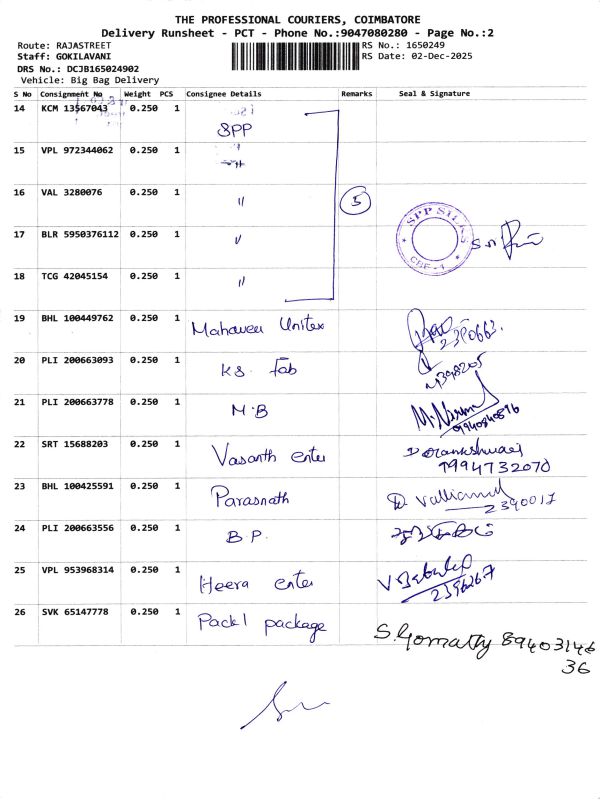 THE PROFESSIONAL COURIERS, COIMBATORE
Delivery Runsheet - PCT - Phone No.:9047080280 - Page No.:2
Route: RAJASTREET
Staff: GOKILAVANI
DRS No.: DCJB165024902
Vehicle: Big Bag Delivery
RS No.: 1650249
RS Date: 02-Dec-2025
S No Consignment No Weight PCS Consignee Details Remarks Seal & Signature
14 KCM 13567043 0.250 1 SPP
15 VPL 972344062 0.250 1
16 VAL 3280076 0.250 1 "
5
17 BLR 5950376112 0.250 1 "
SPP SILKS
CBE-1
18 TCG 42045154 0.250 1 "
19 BHL 100449762 0.250 1 Mahaveer Unitex
2390663.
20 PLI 200663093 0.250 1 KS. Fab
4398205
21 PLI 200663778 0.250 1 M.B M.Nirmal
9940840896
22 SRT 15688203 0.250 1 Vasanth enter
7994732070
23 BHL 100425591 0.250 1 Parasnath
2390017
24 PLI 200663556 0.250 1 B.P.
25 VPL 953968314 0.250 1 Heera enter
2396267
26 SVK 65147778 0.250 1 Pack1 package S.Gomathy 89403146
36